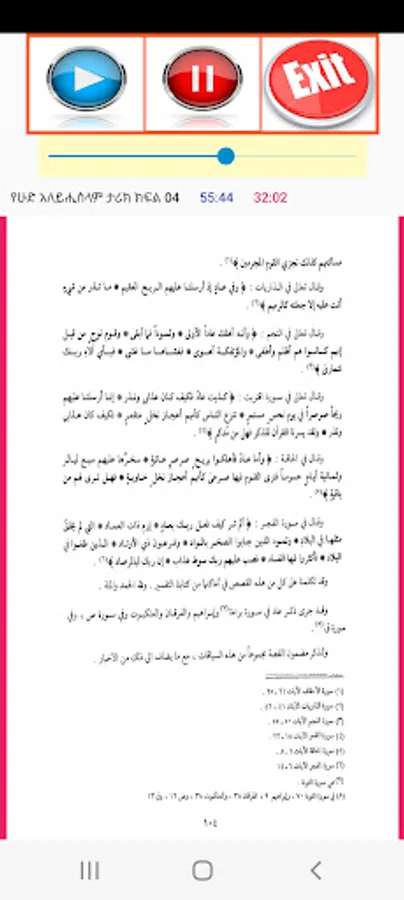 Exit
የሁድ አለይሒሰላም ታሪክ ክፍል 04 55:44 32:02
مساكنهم كذلك نجزي القوم المجرمين ﴾(١) .
وقال تعالى في الذاريات : ﴿ وفي عاد إذ أرسلنا عليهم الريح العقيم * ما تذر من شيء
أتت عليه إلا جعلته كالرميم ﴾(٢) .
وقال تعالى في النجم : ﴿ وأنه أهلك عاداً الأولى * وثموداً فما أبقى * وقوم نوح من قبل
إنهم كانوا هم أظلم وأطغى * والمؤتفكة أهوى * فغشاها ما غشى * فبأي آلاء ربك
تتمارى ﴾(٣) .
وقال تعالى في سورة اقتربت : ﴿ كذبت عاد فكيف كان عذابي ونذر * إنا أرسلنا عليهم
ريحاً صرصراً في يوم نحس مستمر * تنزع الناس كأنهم أعجاز نخل منقعر * فكيف كان عذابي
ونذر * ولقد يسرنا القرآن للذكر فهل من مدكر ﴾(٤) .
وقال في الحاقة : ﴿ وأما عاد فأهلكوا بريح صرصر عاتية * سخرها عليهم سبع ليال
وثمانية أيام حسوماً فترى القوم فيها صرعى كأنهم أعجاز نخل خاوية * فهل ترى لهم من
باقية ﴾(٥) .
وقال في سورة الفجر : ﴿ ألم تر كيف فعل ربك بعاد * إرم ذات العماد * التي لم يخلق
مثلها في البلاد * وثمود الذين جابوا الصخر بالواد * وفرعون ذي الأوتاد * الذين طغوا في
البلاد * فأكثروا فيها الفساد * فصب عليهم ربك سوط عذاب * إن ربك لبالمرصاد ﴾(٦) .
وقد تكلمنا على كل من هذه القصص في أماكنها من كتابنا التفسير . ولله الحمد والمنة .
وقد جرى ذكر عاد في سورة براءة(٧) وإبراهيم والفرقان والعنكبوت وفي سورة ص ، وفي
سورة ق(٨) .
ولنذكر مضمون القصة مجموعاً من هذه السياقات ، مع ما يضاف الى ذلك من الاخبار .
(١) سورة الأحقاف الآيات ٢١ ـ ٢٥ .
(٢) سورة الذاريات الآيات ٤١ ـ ٤٢ .
(٣) سورة النجم الآيات ٥٠ ـ ٥٥ .
(٤) سورة القمر الآيات ١٨ ـ ٢٢ .
(٥) سورة الحاقة الآيات ٦ ـ ٨ .
(٦) سورة الفجر الآيات ٦ ـ ١٤
(٧) هي سورة التوبة .
(٨) في سورة التوبة ٧٠ ، وإبراهيم ٩ ، الفرقان ٣٨ ، والعنكبوت ٣٨ ، وص ١٢ ، وق ١٣
١٠٤